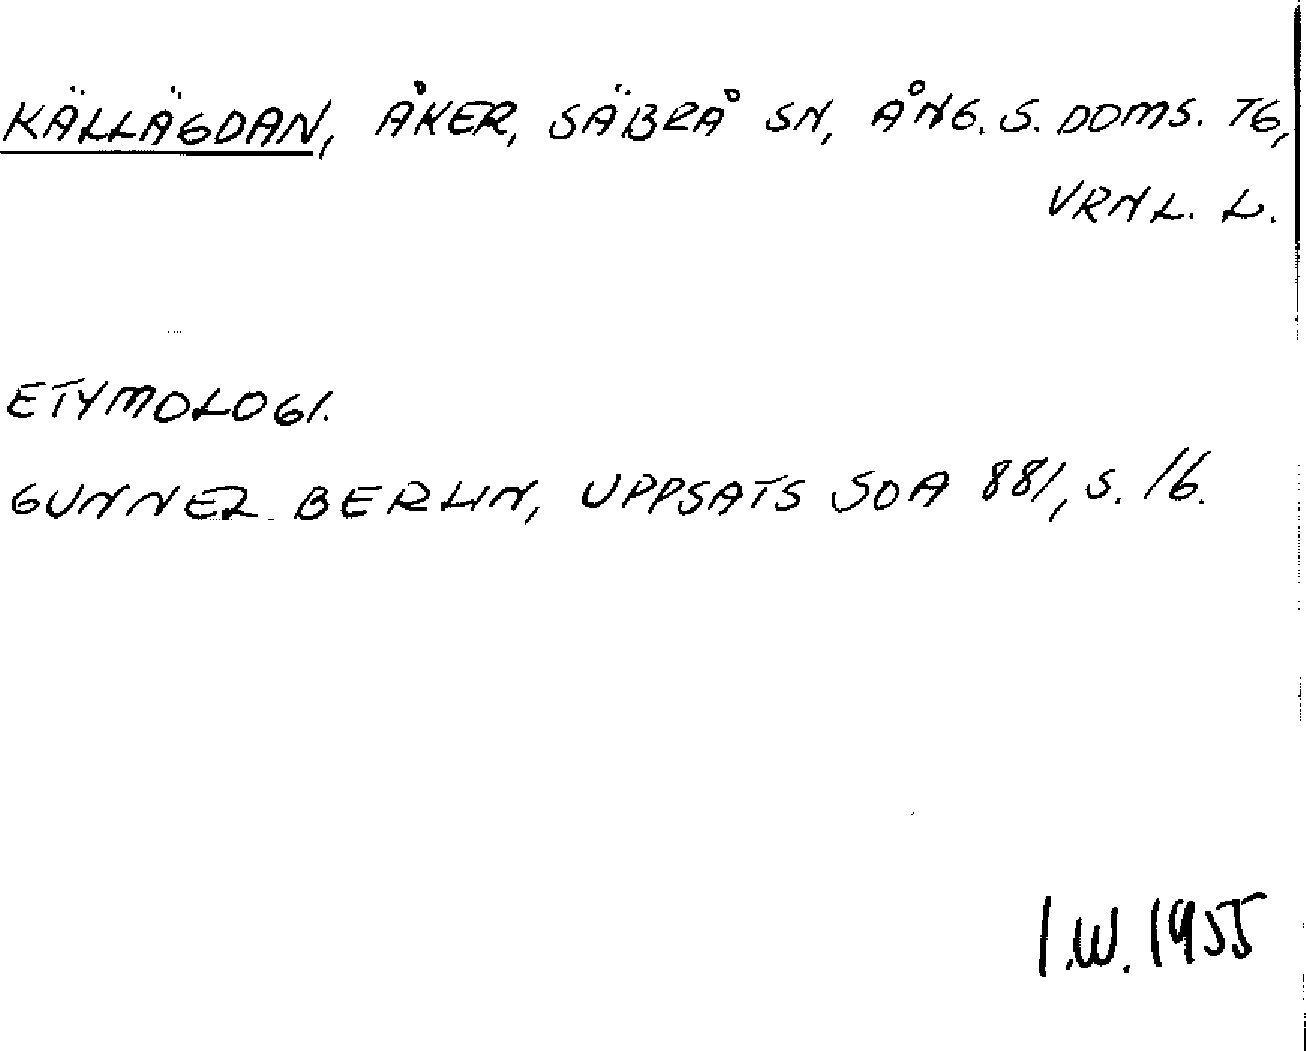 KÄLLÄGDAN, ÅKER, SÄBRÅ SN, ÅNG. S. DOMS. TG,
VRNL. L.
ETYMOLOGI.
GUNNER BERLIN, UPPSATS SOA 881, S. 16.
I.W. 1955